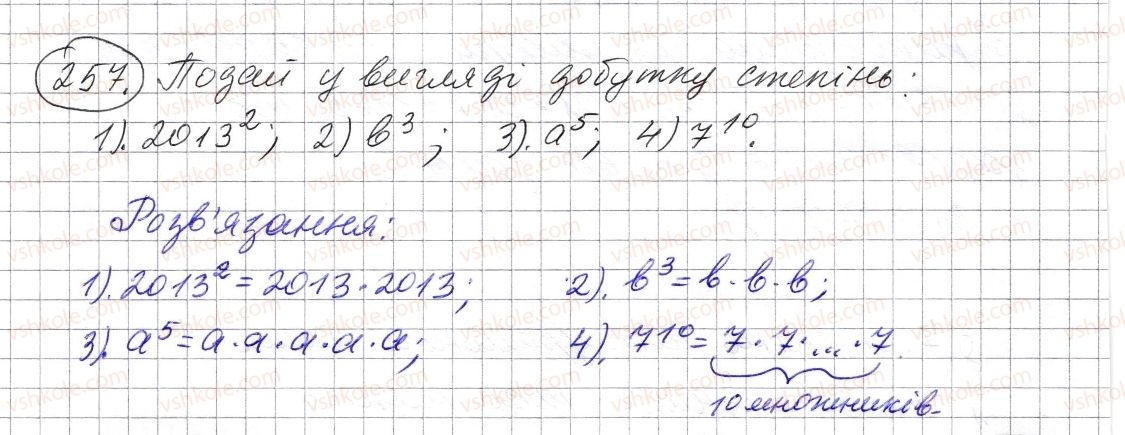 257. Подай у вигляді добутку степінь:
1). 2013²; 2) b³; 3). a⁵; 4) 7¹⁰.
Розв'язання:
1). 2013² = 2013 · 2013; 2). b³ = b · b · b;
3). a⁵ = a · a · a · a · a; 4). 7¹⁰ = 7 · 7 · ... · 7.
10 множників